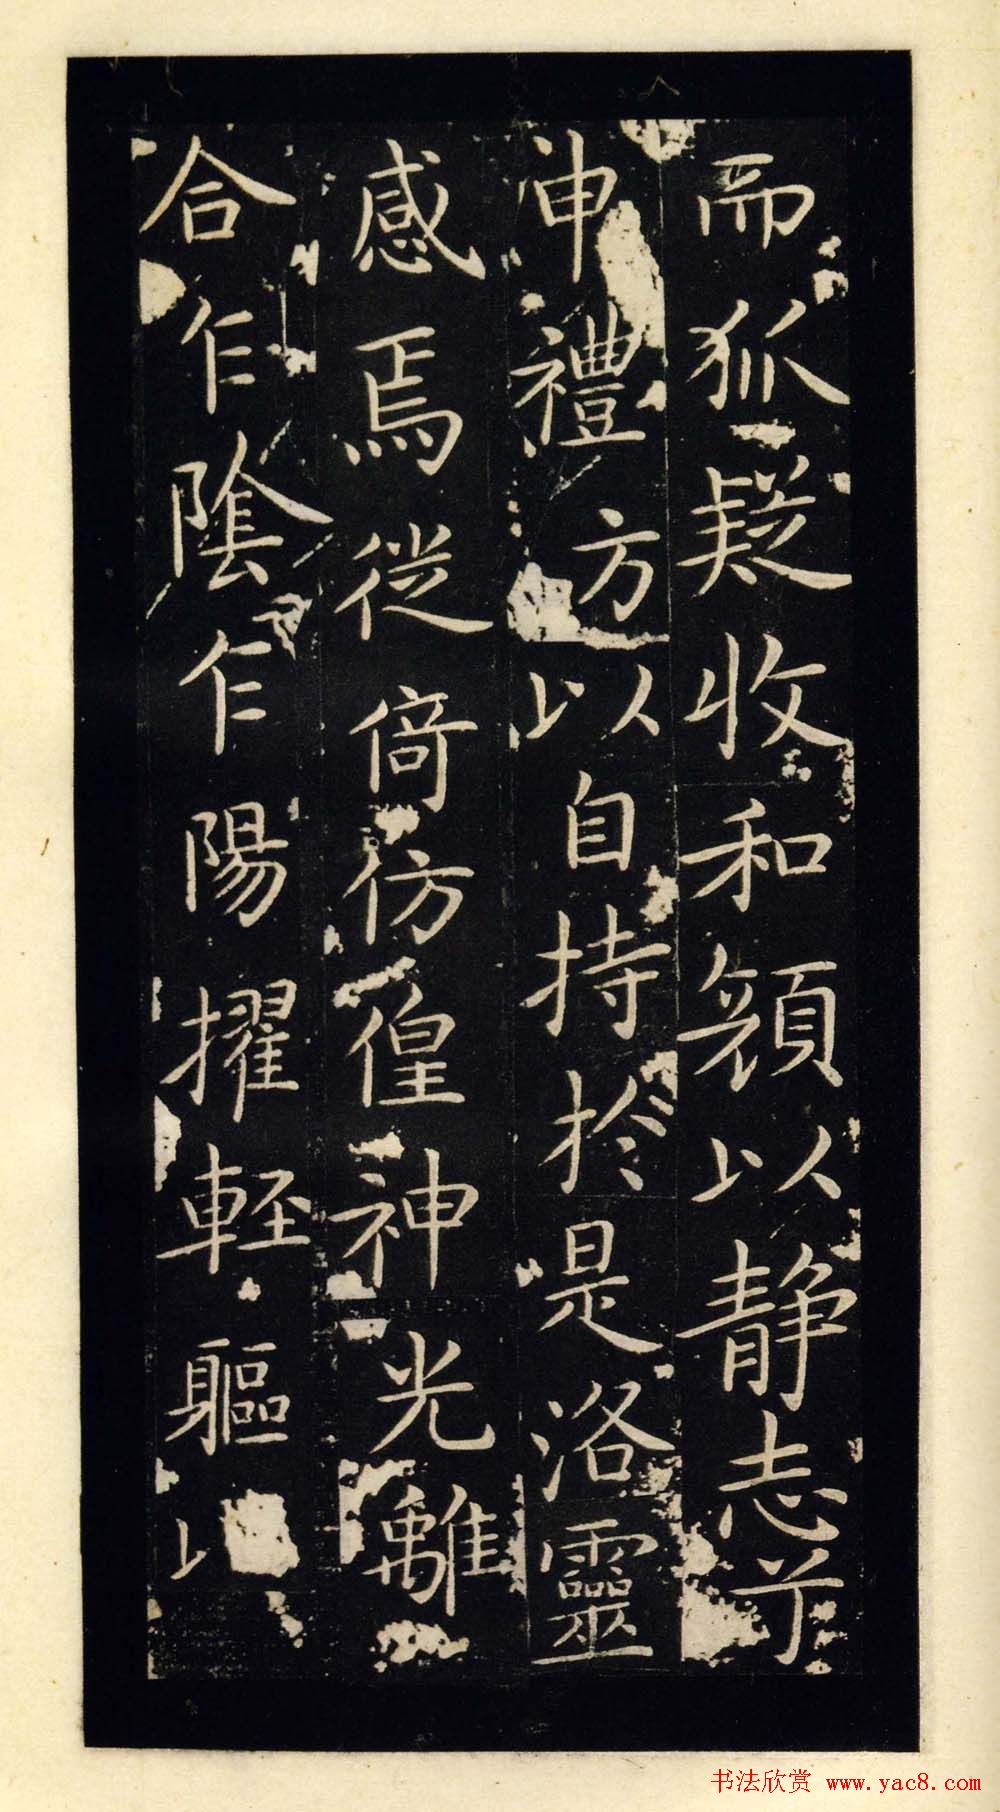 而狐疑收和顔以静志兮
申禮方以自持於是洛靈
感焉徙倚仿偟神光離
合乍陰乍陽擢輕軀以
书法欣赏 www.yac8.com